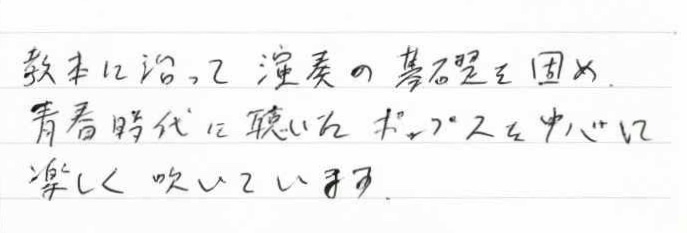 教本に沿って演奏の基礎を固め、
青春時代に聴いたポップスを中心に
楽しく吹いています。